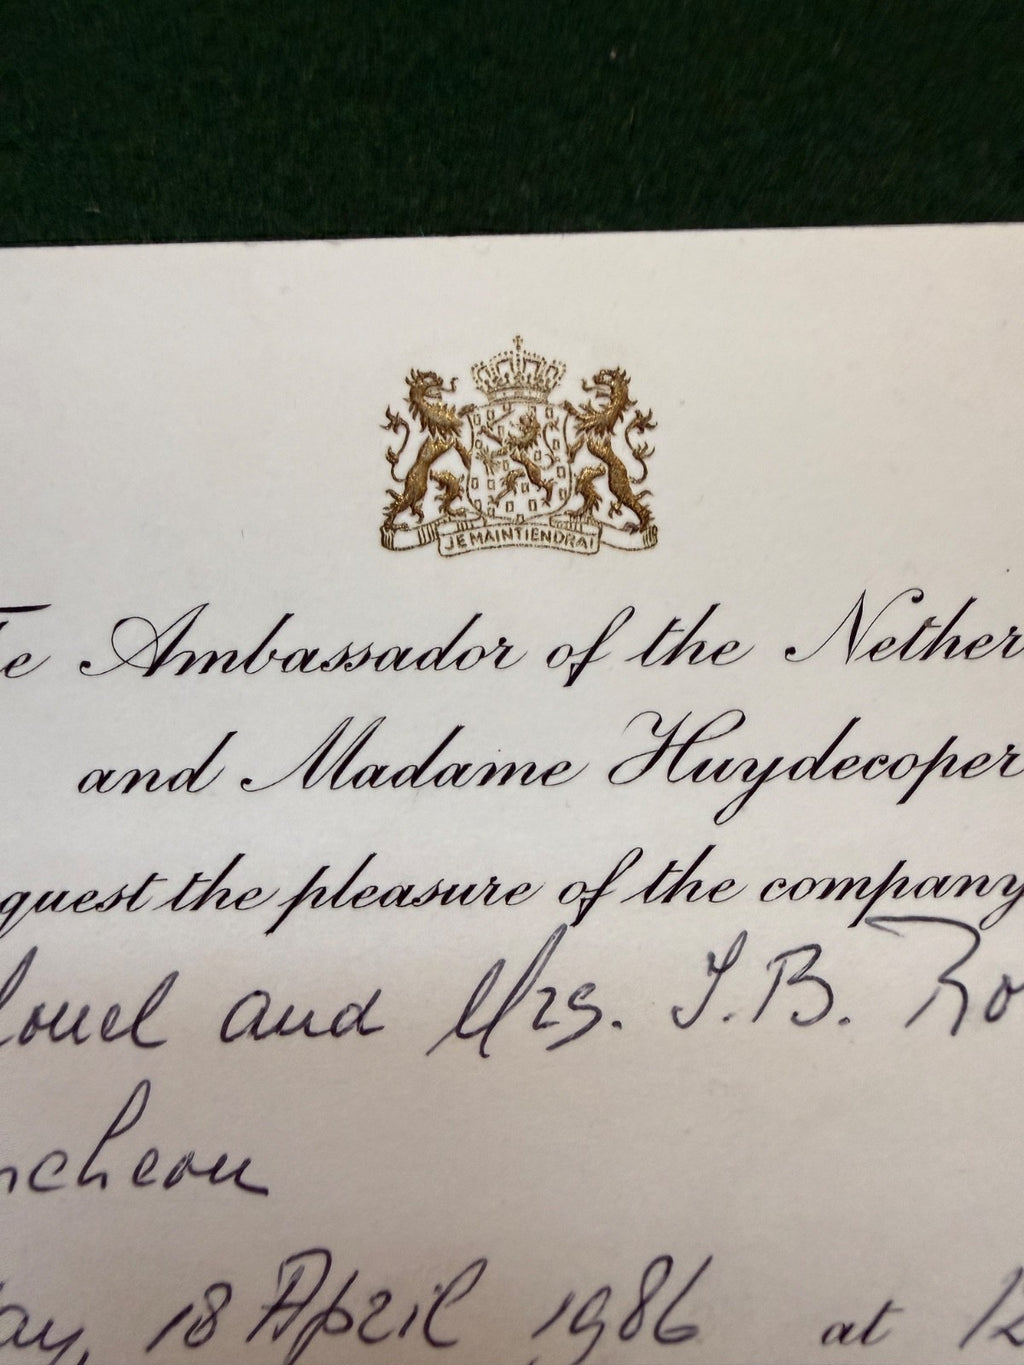 JE MAINTIENDRAI
e Ambassador of the Nether
and Madame Huydecoper
quest the pleasure of the company
lonel and Mrs. J.B. Ro
ncheon
ay, 18 April 1986 at 12